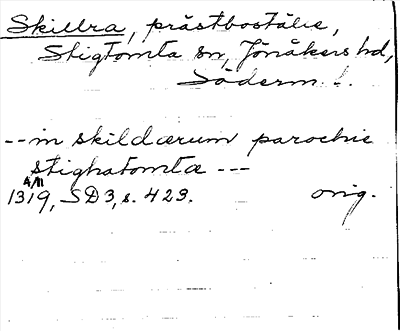 Skillra, prästboställe,
Stigtomta sn, Jönåkers hd,
Söderm. l.
--in skildærum parochie
stighatomtæ ---
4/11
1319, SD 3, s. 423. orig.